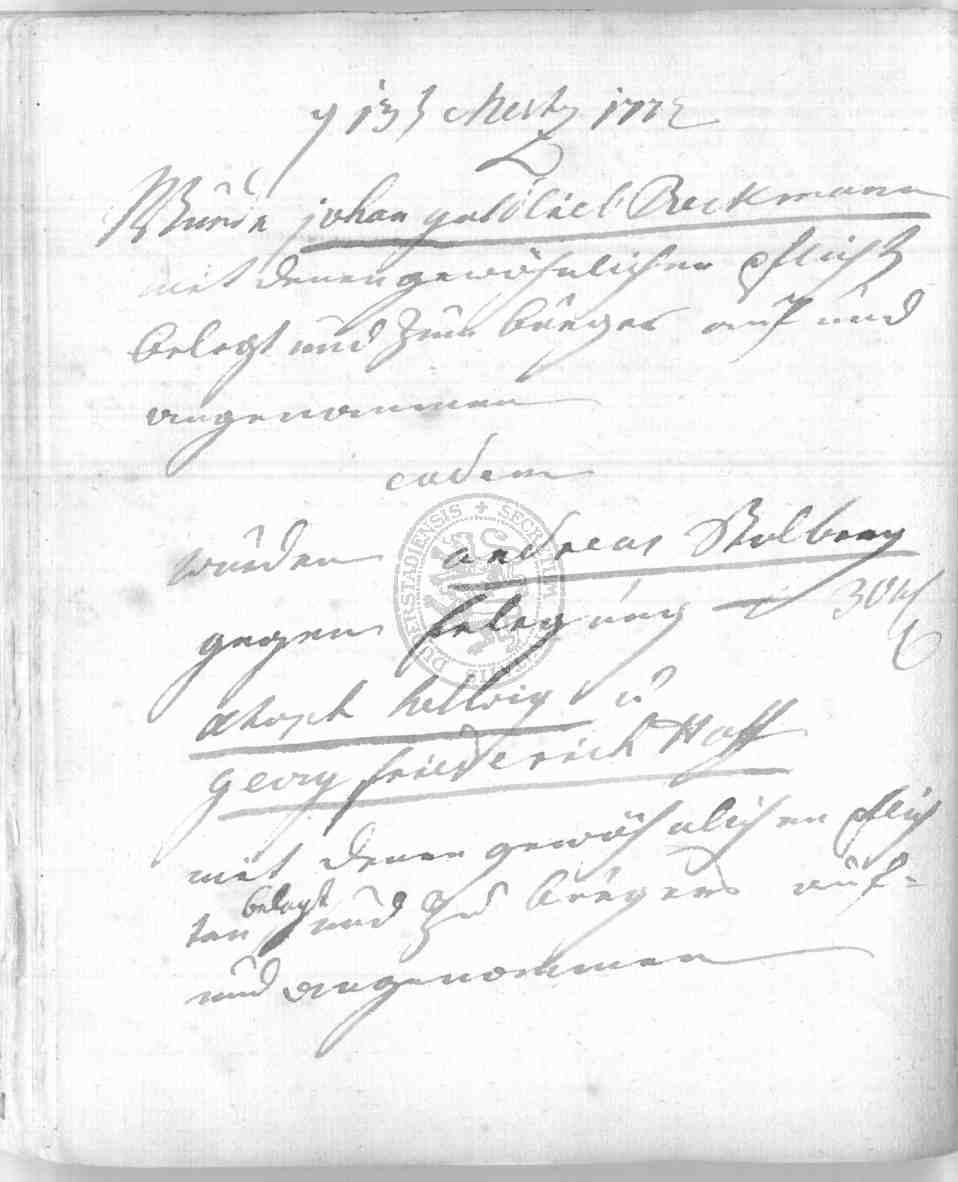 d 13t Mertz 1772
Wurde johan gottlieb Beckmann
mit denen gewöhnlichen pflicht
belegt und zum bürger auf und
angenommen
eodem
wurden andreas Stolberg
gegen Erlegung 30
hellwig u
georg friederich Hoff
mit denen gewöhnlichen pflich
ten belegt und zu bürgers auf-
und angenommen
SECRETUM DUDERSTADIENSIS